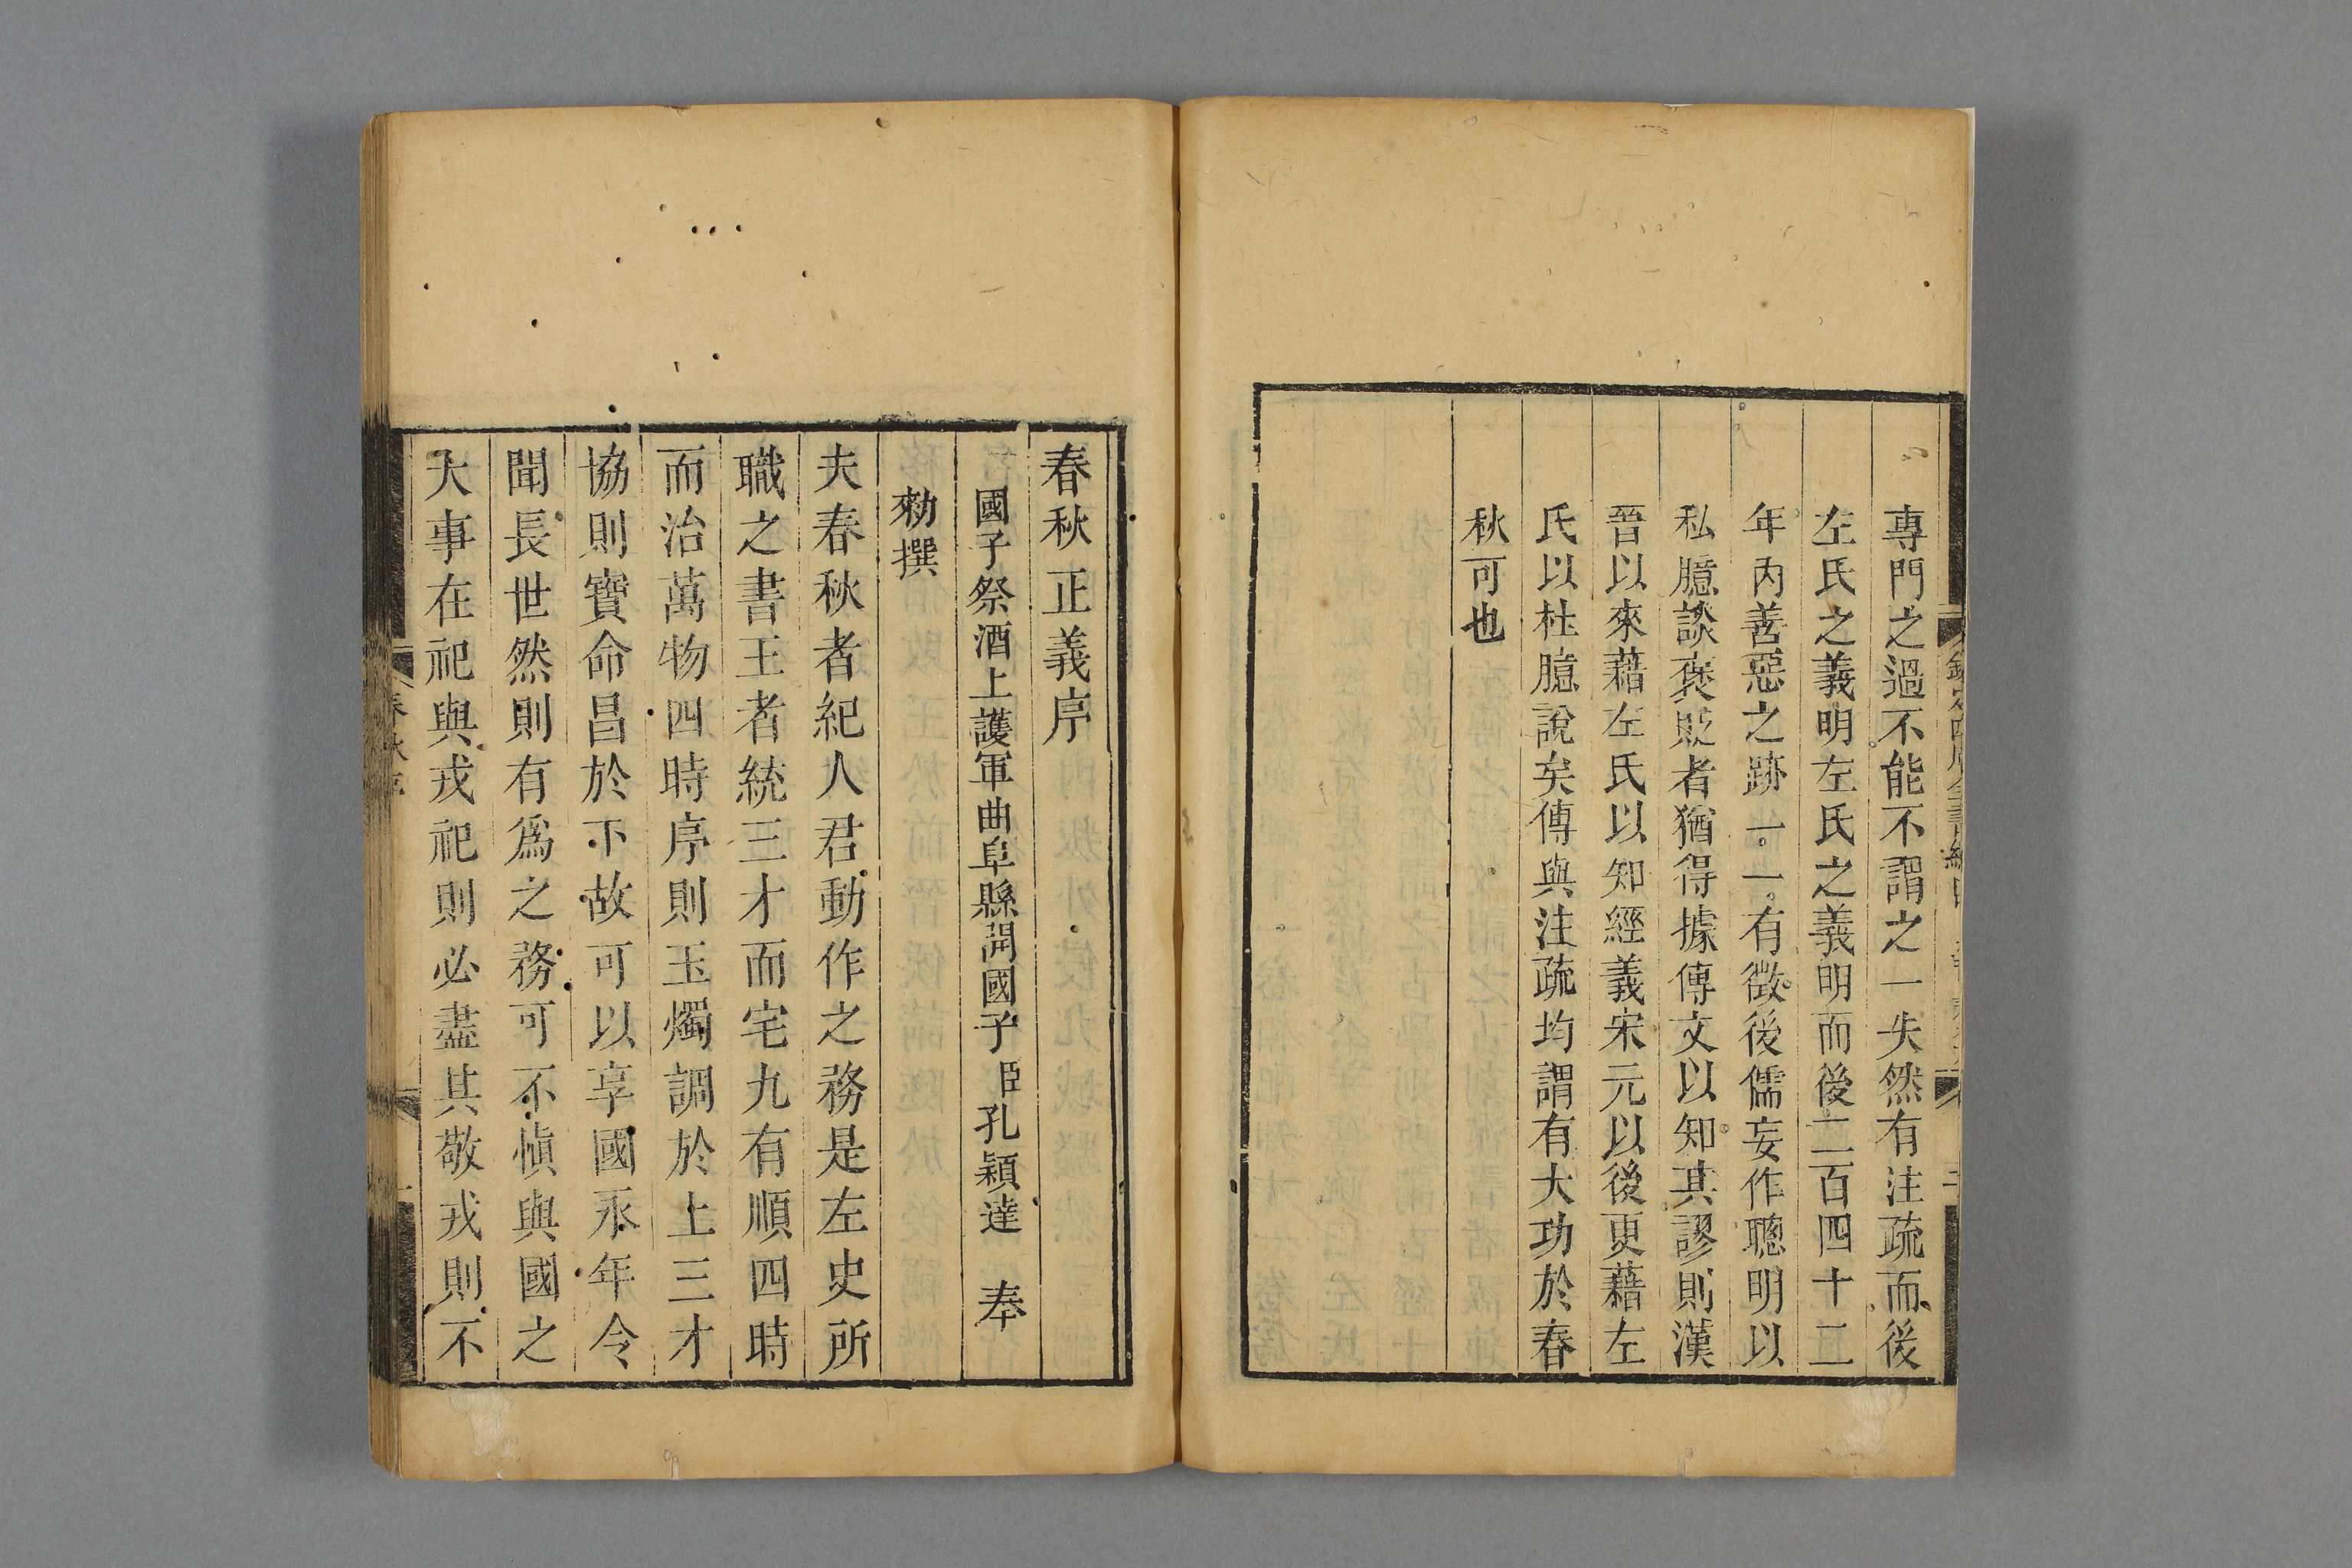 專門之過不能不謂之一失然有注疏而後
左氏之義明左氏之義明而後二百四十二
年內善惡之跡一一有徵後儒妄作聰明以
私臆談褒貶者猶得據傳文以知其謬則漢
晉以來藉左氏以知經義宋元以後更藉左
氏以杜臆說矣傳與注疏均謂有大功於春
秋可也
春秋正義序
國子祭酒上護軍曲阜縣開國子臣孔穎達 奉
勑撰
夫春秋者紀人君動作之務是左史所
職之書王者統三才而宅九有順四時
而治萬物四時序則玉燭調於上三才
協則寶命昌於下故可以享國永年令
聞長世然則有爲之務可不愼與國之
大事在祀與戎祀則必盡其敬戎則不